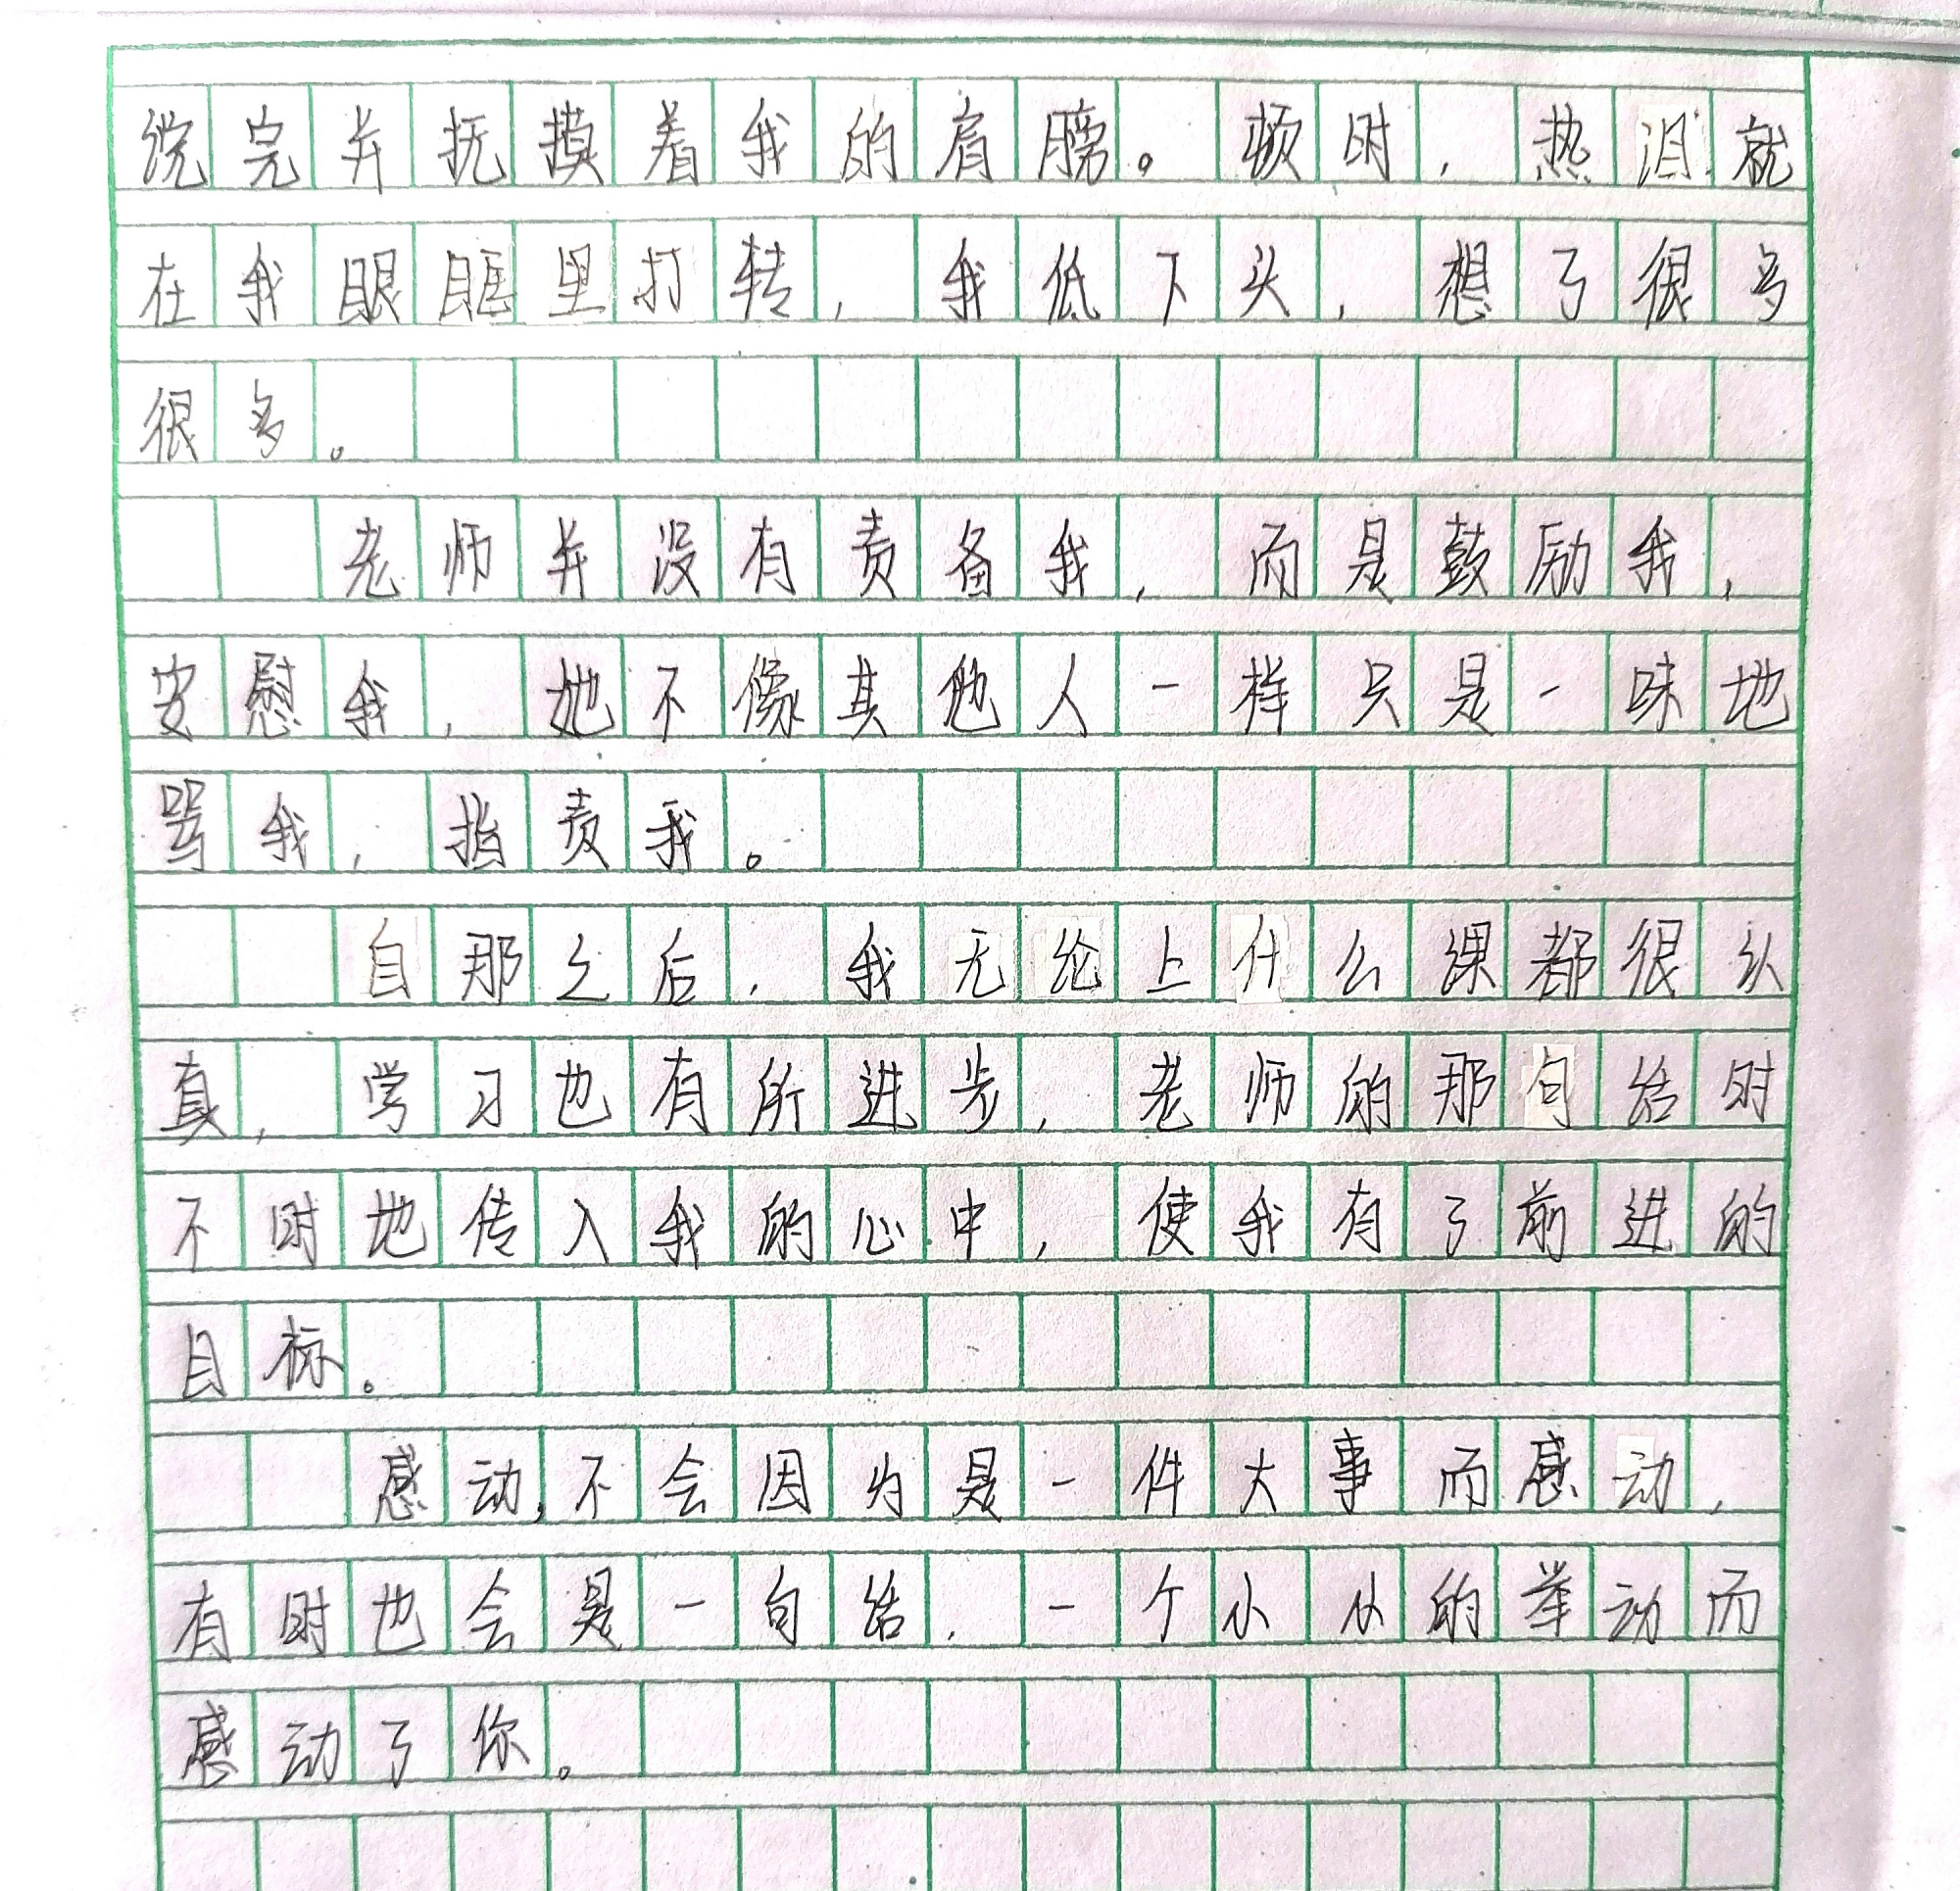 说完并抚摸着我的肩膀。顿时,热泪就
在我眼眶里打转,我低下头,想了很多
很多。
老师并没有责备我,而是鼓励我,
安慰我,她不像其他人一样只是一味地
骂我,指责我。
自那之后,我无论上什么课都很认
真,学习也有所进步,老师的那句话时
不时地传入我的心中,使我有了前进的
目标。
感动,不会因为是一件大事而感动,
有时也会是一句话,一个小小的举动而
感动了你。